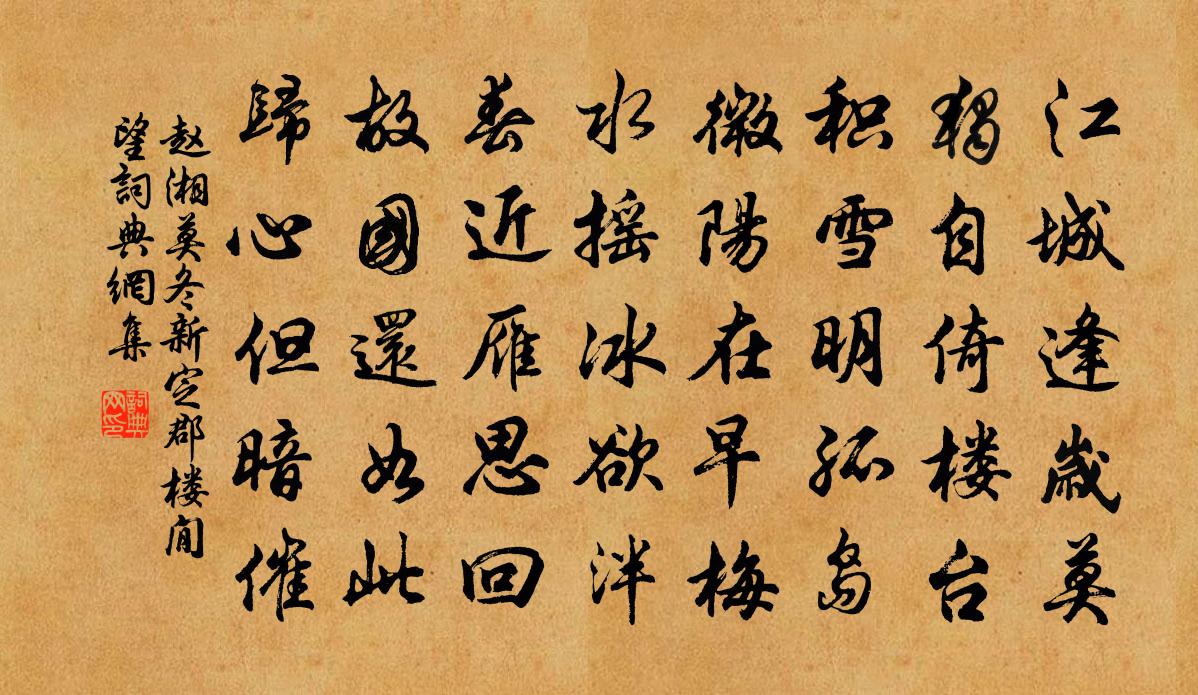 江城逢歲莫
獨自倚楼台
积雪明孤岛
微陽在早梅
水摇冰欲泮
春近雁思回
故國還如此
歸心但暗催
赵湘莫冬新定郡楼閒
望詞典網集
詞典网印